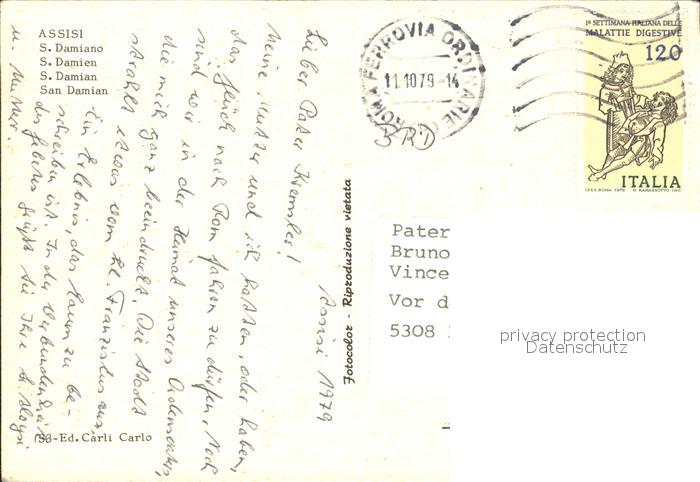 ASSISI
S. Damiano
S. Damien
S. Damian
San Damian
Assisi 1979
Lieber Pater Kremsler!
Meine Mutter und ich hatten, oder haben,
das Glück nach Rom fahren zu dürfen. Auch
sind wir in der Heimat unseres Ordensvaters,
die mich ganz beeindruckt. Die Stadt
strahlt etwas vom hl. Franziskus aus.
Ein Erlebnis, das kaum zu be-
schreiben ist. In der Verbundenheit
des Gebetes grüßt Sie Ihre
u. Mutter.
83-Ed. Carli Carlo
Fotocolor - Riproduzione vietata
ROMA FERROVIA ORDINARIE
11.10.79-14
BRD
1ª SETTIMANA ITALIANA DELLE
MALATTIE DIGESTIVE
120
ITALIA
I.P.Z.S. ROMA 1979
Pater
Bruno
Vince
Vor d
5308
privacy protection
Datenschutz